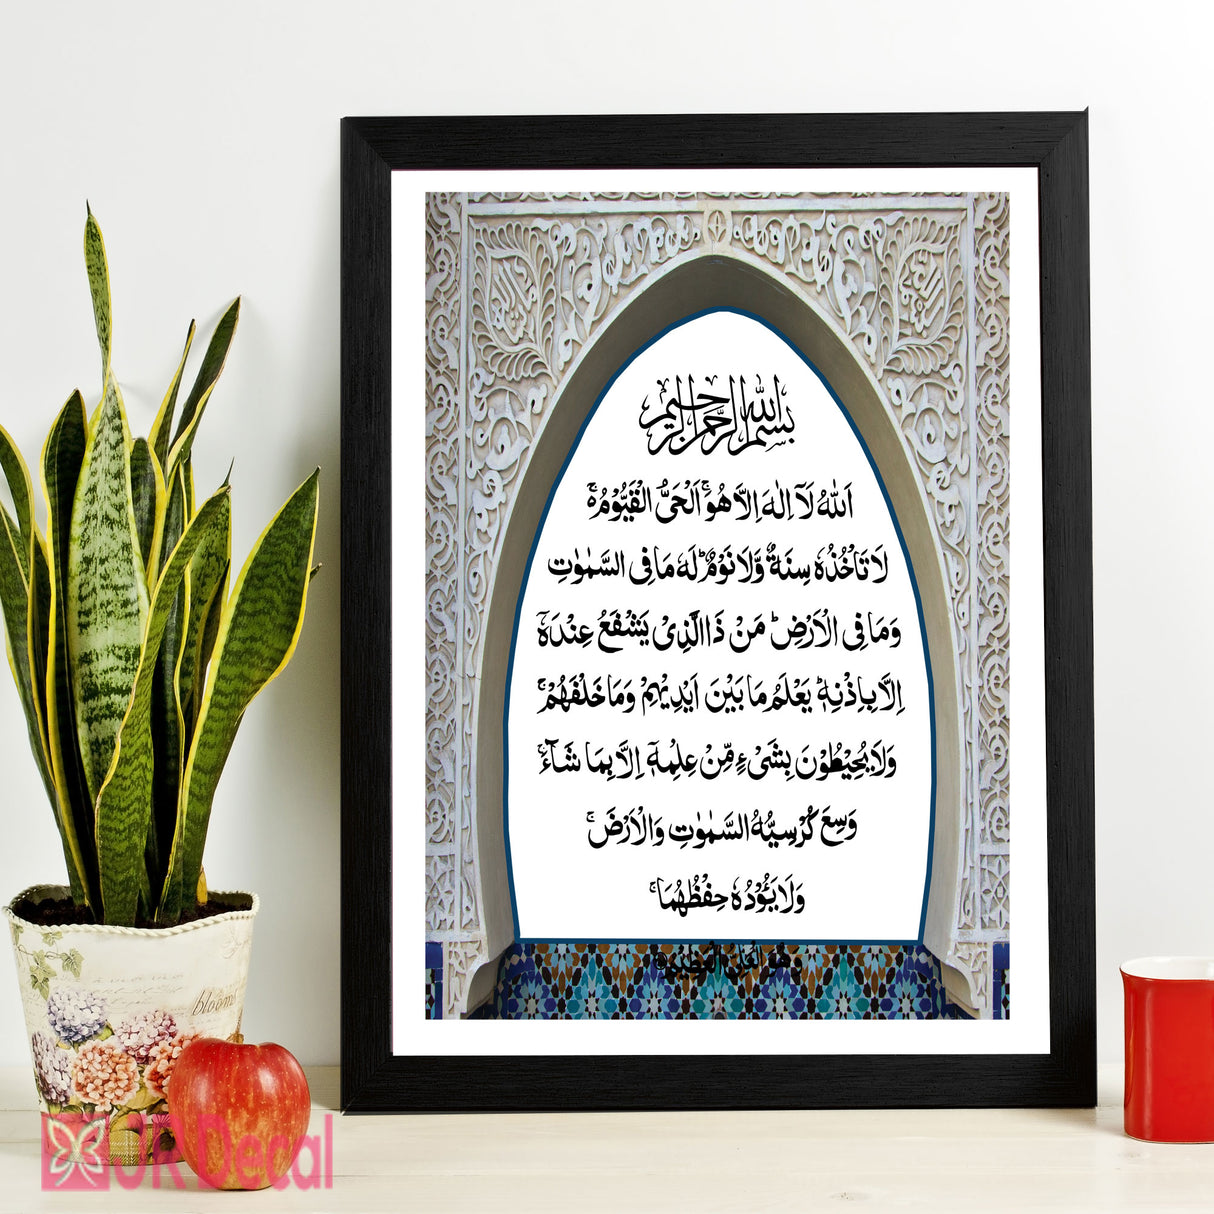 بسم الله الرحمن الرحيم
اَللّٰهُ لَآ اِلٰهَ اِلَّا هُوَۚ اَلْحَىُّ الْقَيُّوْمُ ەۚ
لَا تَاْخُذُهٗ سِنَةٌ وَّلَا نَوْمٌؕ لَهٗ مَا فِى السَّمٰوٰتِ
وَمَا فِى الْاَرْضِؕ مَنْ ذَا الَّذِىْ يَشْفَعُ عِنْدَهٗۤ
اِلَّا بِاِذْنِهٖؕ يَعْلَمُ مَا بَيْنَ اَيْدِيْهِمْ وَمَا خَلْفَهُمْۚ
وَلَا يُحِيْطُوْنَ بِشَىْءٍ مِّنْ عِلْمِهٖۤ اِلَّا بِمَا شَآءَۚ
وَسِعَ كُرْسِيُّهُ السَّمٰوٰتِ وَالْاَرْضَۚ
وَلَا يَــُٔوْدُهٗ حِفْظُهُمَاۚ
وَهُوَ الْعَلِىُّ الْعَظِيْمُ
blooms
JR Decal